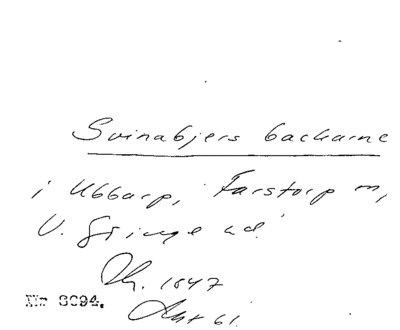 Svinabjers backarne
i Ubbarp, Farstorp m,
V. Göinge hd.
Ak. 1847
Akt 61.
Nr 8094.